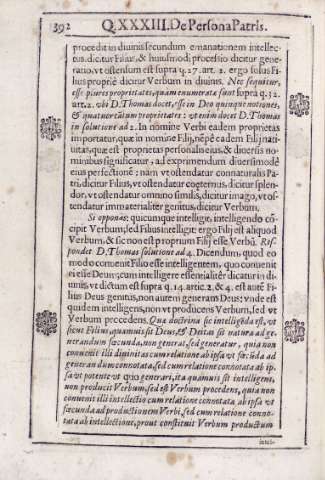 392 Q. XXXIII. De Persona Patris.
procedit in diuinis secundum emanationem intellec-
tus, dicitur Filius, & huiusmodi processio dicitur gene-
ratio, vt ostensum est supra q. 27. art. 2. ergo solus Fi-
lius propriè dicitur Verbum in diuinis. Nec sequitur,
esse plures proprietates, quam enumeratæ sunt supra q. 32.
art. 2. vbi D. Thomas docet, esse in Deo quinque notiones,
& quatuor tãtum proprietates: vt enim docet D. Thomas
in solutione ad 2. In nomine Verbi eadem proprietas
importatur, quæ in nomine Filij, nẽpè eadem Filij nati-
uitas, quæ est proprietas personalis eius, & diuersis no-
minibus significatur, ad exprimendum diuersimodè
eius perfectionẽ: nam vt ostendatur connaturalis Pa-
tri, dicitur Filius, vt ostendatur coæternus, dicitur splen-
dor, vt ostendatur omnino similis, dicitur imago, vt os-
tendatur immaterialiter genitus, dicitur Verbum.
Si opponas: quicumque intelligit, intelligendo cõ-
cipit Verbum, sed Filius intelligit: ergo Filij est aliquod
Verbum, & sic non est proprium Filij esse Verbũ. Res-
pondet D. Thomas solutione ad 4. Dicendum, quod eo
modo conuenit Filio esse intelligentem, quo conuenit
ei esse Deum; cum intelligere essentialitèr dicatur in di-
uinis, vt dictum est supra q. 14. artic. 2. & 4. est autẽ Fi-
lius Deus genitus, non autem generans Deus: vnde est
quidem intelligens, non vt producens Verbum, sed vt
Verbum procedens. Quæ doctrina sic intelligẽda est, vt
sicut Filius, quamuis sit Deus, & Deitas sit natura ad ge-
nerandum fæcunda, non generat, sed generatur, quia non
conuenit illi diuinitas cum relatione ab ipsa vt fæcũda ad
generandum connotata, sed cum relatione connotata ab ip-
sa vt potente vt quo generari, ita quamuis sit intelligens,
non producit Verbum, sed est Verbum procedens, quia non
conuenit illi intellectio cum relatione connotata ab ipsa vt
fæcunda ad productionem Verbi, sed cum relatione conno-
tata ab intellectione, prout constituit Verbum productum
intel-